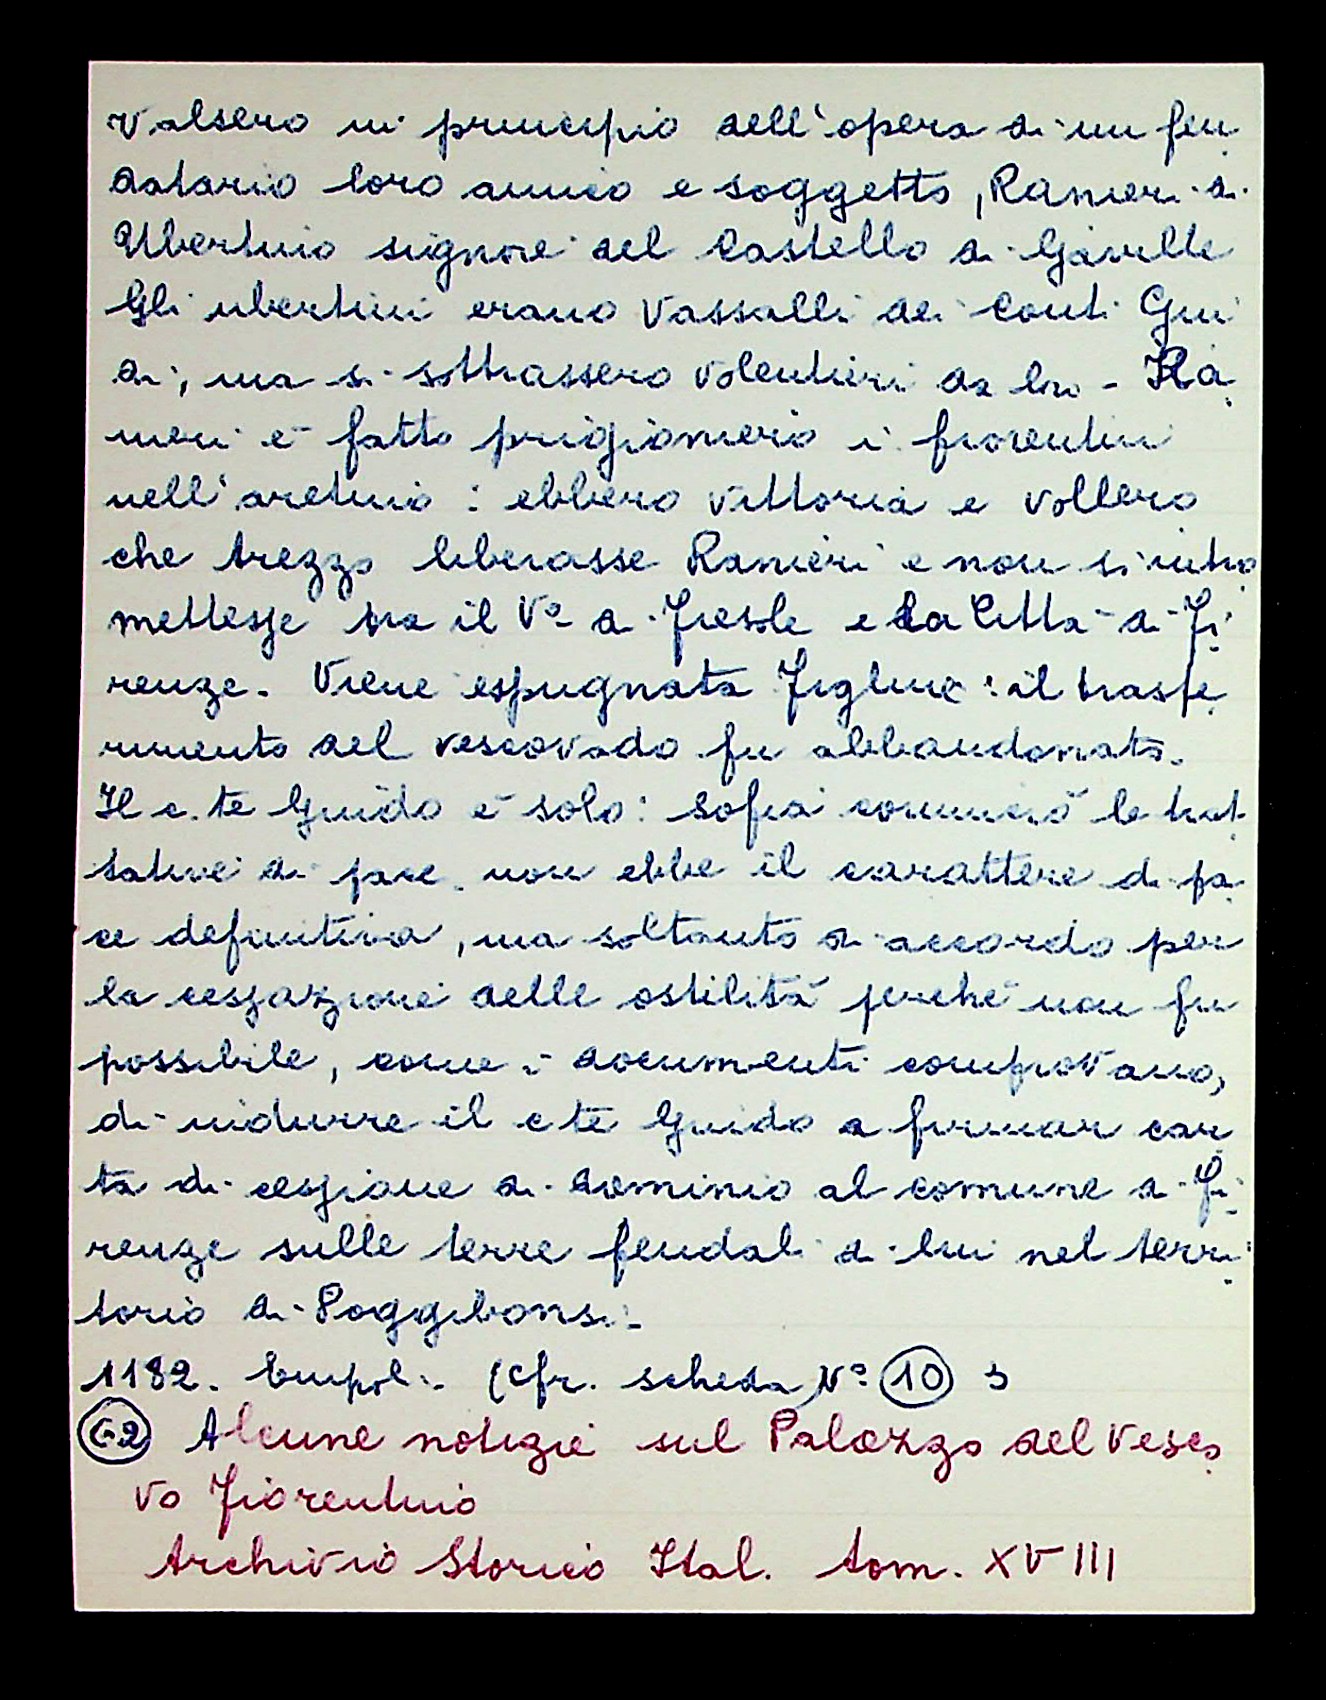 valsero in principio dell'opera di un feu
datario loro amico e soggetto, Ranieri di
Ubertino signore del Castello di Gaville
Gli ubertini erano vassalli dei Conti Gui
di, ma si sottrassero volentieri da loro - Ra
nieri è fatto prigioniero i fiorentini
nell'aretino : ebbero vittoria e vollero
che Arezzo liberasse Ranieri e non si intro
mettesse tra il Vo di Fiesole e la Città di Fi
renze. Viene espugnata Figline : il trasfe
rimento del vescovado fu abbandonato.
Il c.te Guido è solo : Sofia cominciò le trat
tative di pace. non ebbe il carattere di pa
ce definitiva, ma soltanto di accordo per
la cessazione delle ostilità perché non fu
possibile, come i documenti comprovano,
di indurre il c te Guido a firmar car
ta di cessione di dominio al comune di Fi
renze sulle terre feudali di lui nel terri
torio di Poggibonsi.
1182. Empoli. (Cfr. scheda No 10)
62 Alcune notizie sul Palazzo del Vesco
vo Fiorentino
Archivio Storico Ital. tom. XVIII